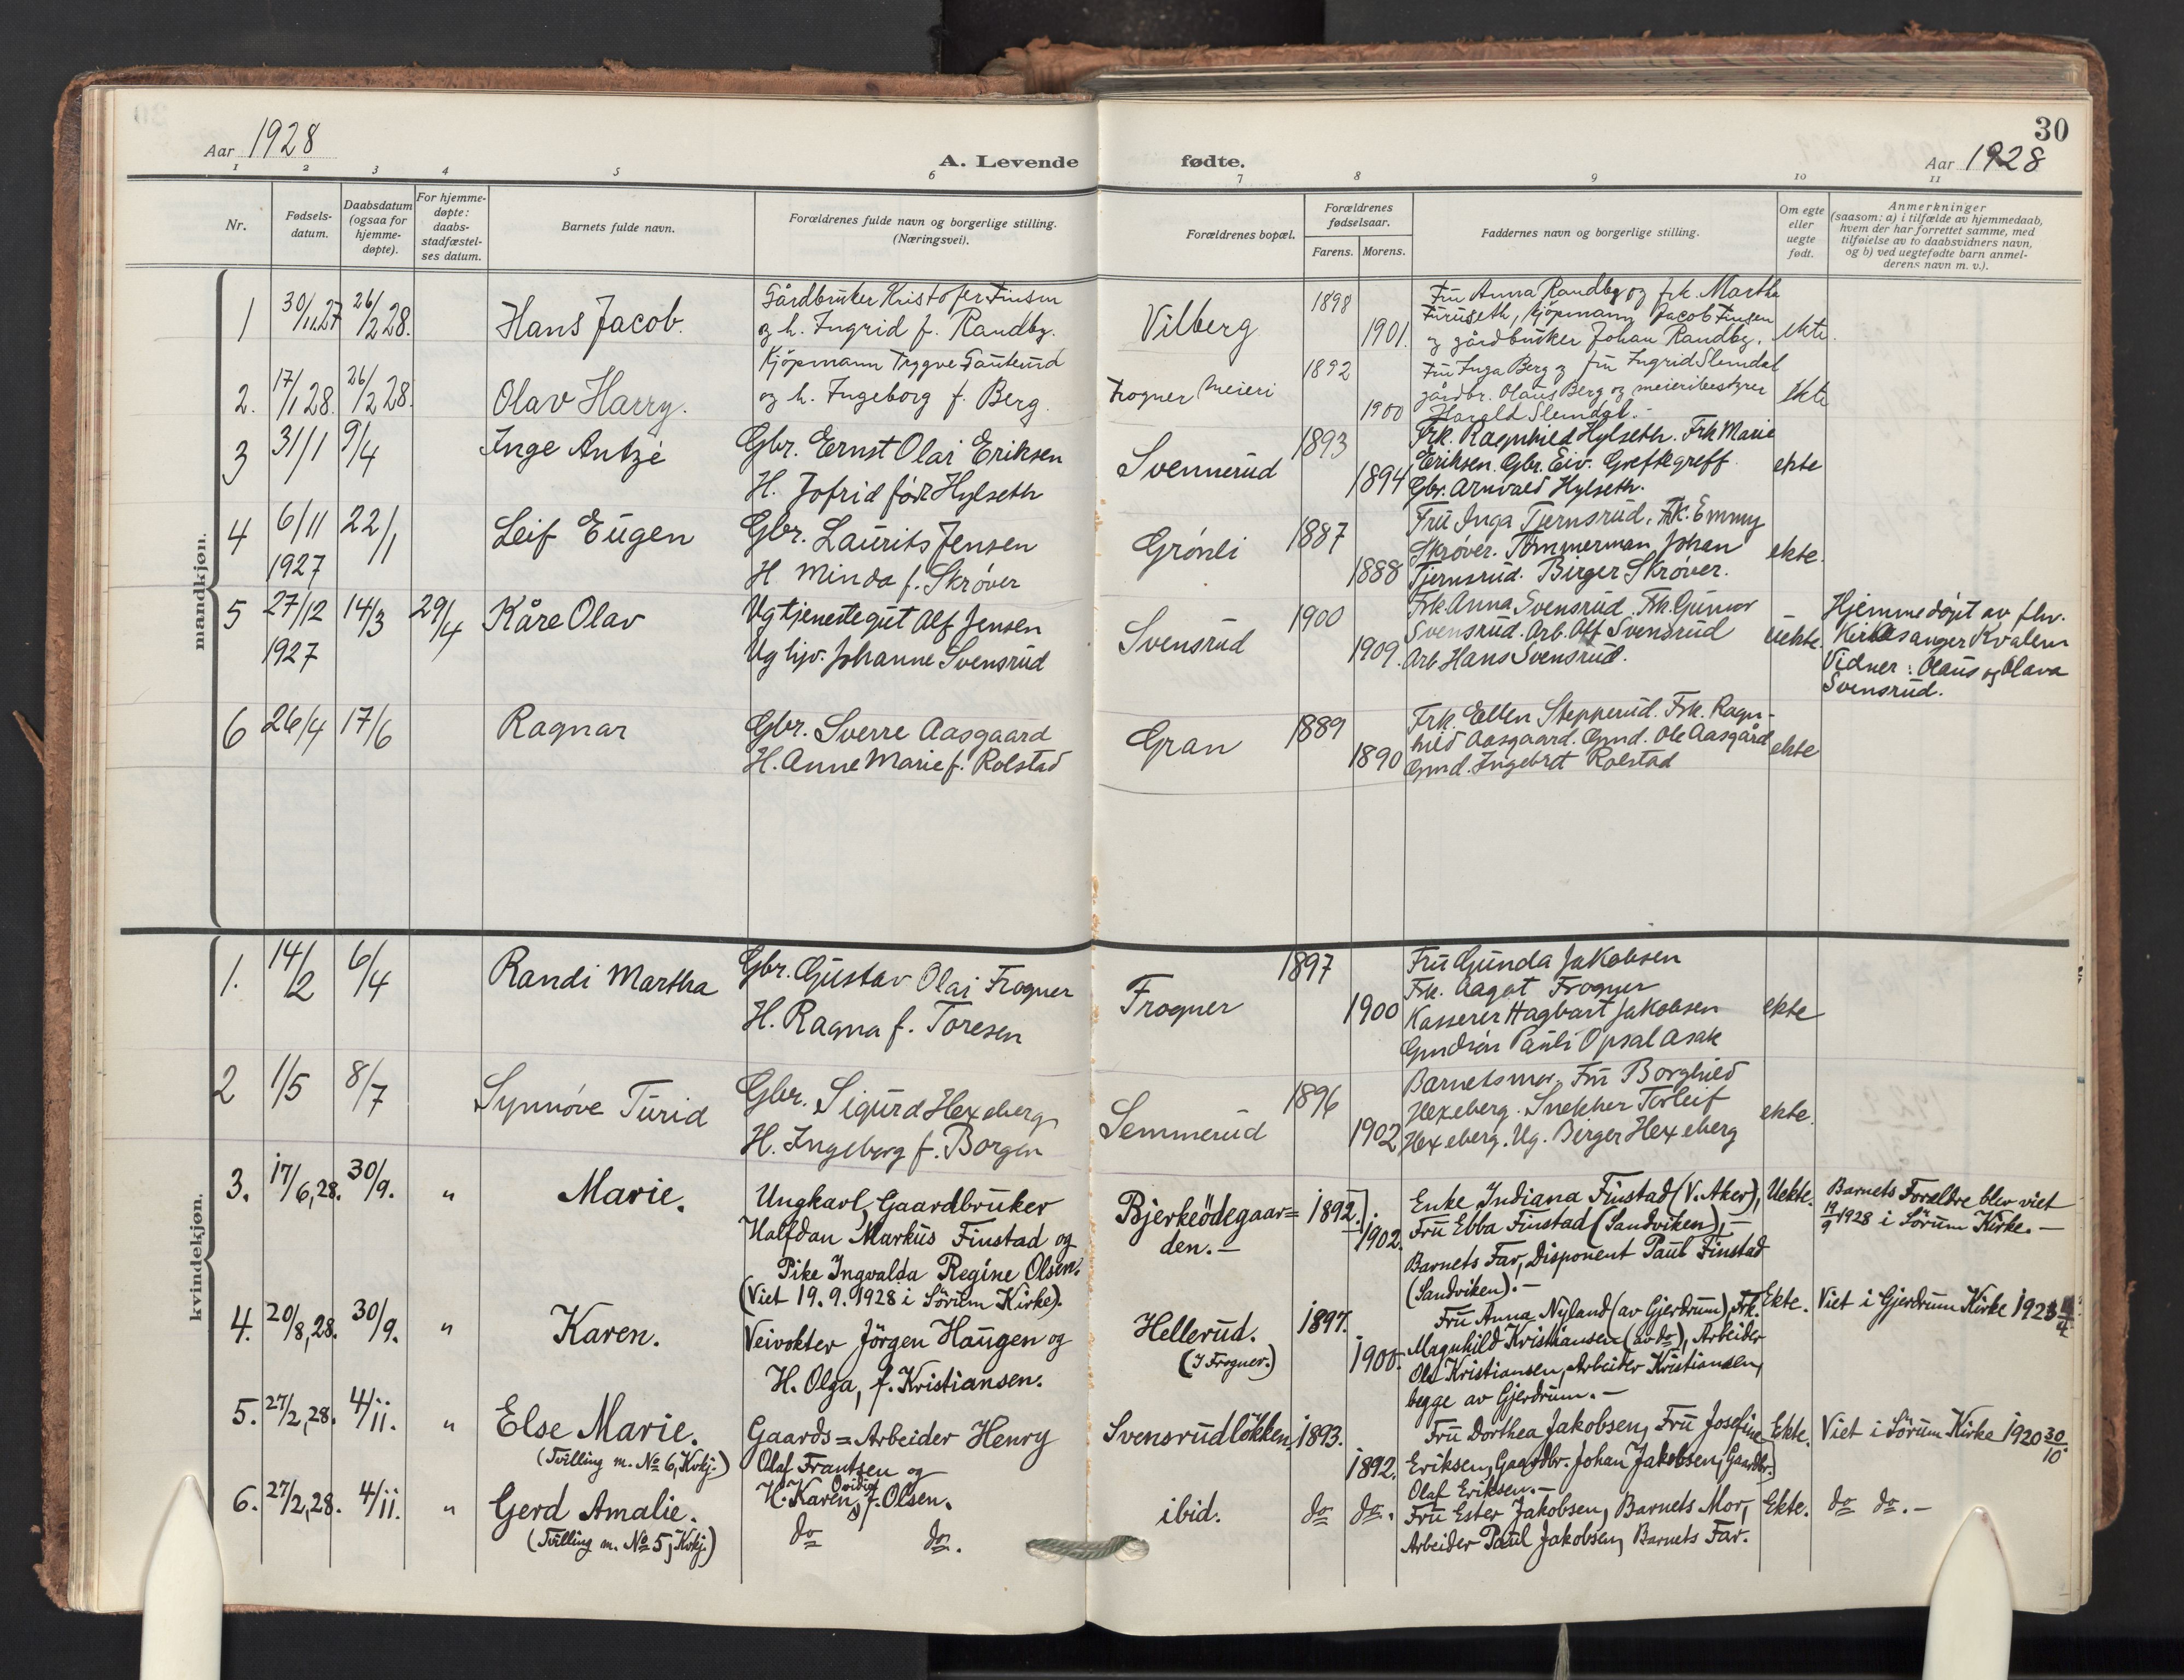 30
Aar 1928
A. Levende fødte.
Aar 1928
1 2 3 4 5 6 7 8 9 10 11
Nr.
Fødsels-
datum.
Daabsdatum
(ogsaa for
hjemme-
døpte).
For hjemme-
døpte:
daabs-
stadfæstel-
ses datum.
Barnets fulde navn.
Forældrenes fulde navn og borgerlige stilling.
(Næringsvei).
Forældrenes bopæl.
Forældrenes
fødselsaar.
Farens. Morens.
Faddernes navn og borgerlige stilling.
Om egte
eller
uegte
født.
Anmerkninger
(saasom: a) i tilfælde av hjemmedaab,
hvem der har forrettet samme, med
tilføielse av to daabsvidners navn,
og b) ved uegtefødte barn anmel-
derens navn m. v.).
mandkjøn.
1 30/11 27 26/2 28. Hans Jacob.
Gårdbruker Kristofer Finsen
og h. Ingrid f. Randby.
Vilberg 1898 1901.
Fru Anna Randby og frk. Martha
Furuseth, kjöpmann Jacob Finsen
og gårdbruker Johan Randby.
ekte.
2. 17/1 28. 26/2 28. Olav Harry.
Kjöpmann Trygve Gauterud
og h. Ingeborg f. Berg.
Frogner Meieri 1892 1900
Fru Inga Berg og fru Ingrid Slemdal
gårdbr. Olaus Berg og meieribestyrer
Harald Slemdal.-
ekte
3 31/1 9/4 Inge Antzé
Gbr. Ernst Olai Eriksen
H. Jofrid født Hylseth
Svennerud 1893 1894
Frk. Ragnhild Hylseth. Frk Marie
Eriksen. Gbr. Eiv. Greftegreff.
Gbr. Arnvald Hylseth.
ekte
4 6/11 1927 22/1 Leif Eugen
Gbr. Laurits Jensen
H. Minda f. Skrøver
Grönli 1887 1888
Fru Inga Tjernsrud. Frk. Emmy
Skrøver. Tømmerman Johan
Tjernsrud. Birger Skrøver.
ekte.
5 27/12 1927 14/3 29/4 Kåre Olav
Ug tjenestegut Alf Jensen
Ug hjv. Johanne Svensrud
Svensrud 1900 1909.
Frk. Anna Svensrud. Frk. Gunvor
Svensrud. Arb. Alf Svensrud
Arb Hans Svensrud.
uekte.
Hjemmedöpt av fhv.
Kirkesanger Kvalem
Vidner: Olaus og Olava
Svensrud.
6 26/4 17/6 Ragnar
Gbr. Sverre Aasgaard
H. Anne Marie f. Rolstad
Gran 1889 1890
Frk. Ellen Stepperud. Frk. Ragn-
hild Aasgaard. Gmd. Ole Aasgård
Gmd. Ingebret Rolstad
ekte
kvindekjøn.
1. 14/2 6/4 Randi Martha
Gbr. Gustav Olai Frogner
H. Ragna f. Toresen
Frogner 1897 1900
Fru Gunda Jakobsen
Frk. Aagot Frogner
Kasserer Hagbart Jakobsen
Pauli Opsal Asak
ekte
2 1/5 8/7 Synnöve Turid
Gbr. Sigurd Hexeberg
H. Ingeborg f. Borgen
Semmerud 1896 1902
Barnets mor, Fru Borghild
Hexeberg. Snekker Torleif
Hexeberg. Ug. Birger Hexeberg
ekte.
3. 17/6, 28. 30/9. " Marie.
Ungkarl, Gaardbruker
Halfdan Markus Finstad og
Pike Ingvalda Regine Olsen.
(Viet 19. 9. 1928 i Sörum Kirke).
Bjerkeödegaar=
den.-
1892. 1902.
Enke Indiana Finstad (V. Aker),
Fru Ebba Finstad (Sandviken), -
Barnets Far, Disponent Paul Finstad
(Sandviken). -
Uekte.
Barnets Foreldre blev viet
19/9 1928 i Sörum Kirke. -
4. 20/8, 28. 30/9. " Karen.
Veivokter Jörgen Haugen og
H. Olga, f. Kristiansen.
Hellerud.
(I Frogner.)
1897. 1900.
Fru Anna Nyland (av Gjerdrum), Frk.
Magnhild Kristiansen (av do), Arbeider
Ole Kristiansen, Arbeider Kristiansen,
begge av Gjerdrum. -
Ekte.
Viet i Gjerdrum Kirke 1923
5. 27/2, 28. 4/11. " Else Marie.
(Tvilling m. No 6, Kvkj.)
Gaards=Arbeider Henry
Olaf Frantsen og
H. Karen Ovidia, f. Olsen.
Svensrudlökken 1893. 1892.
Fru Dorthea Jakobsen, Fru Josefine
Eriksen, Gaardbr. Johan Jakobsen, Gaardbr.
Olaf Eriksen. -
Ekte.
Viet i Sörum Kirke 1920 30/10.
6. 27/2, 28. 4/11. " Gerd Amalie.
(Tvilling m. No 5, Kvkj.)
do do.
ibid. do do.
Fru Ester Jakobsen, Barnets Mor,
Arbeider Paul Jakobsen, Barnets Far.
Ekte.
do do. -